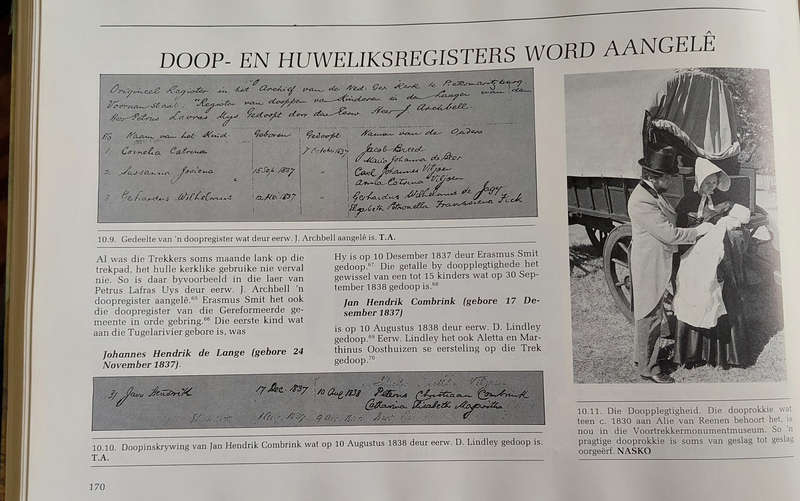 DOOP- EN HUWELIKSREGISTERS WORD AANGELÊ
Origineel Register in het Archief van de Ned. Ger. Kerk te Pietermaritzburg.
Voornan staat: "Register van doopen van Kinderen in de Laager van den
Heer Petrus Lavras Uys Gedoopt door den Eerw Heer J. Archbell.
No Naam van het Kind Geboren Gedoopt Namen van de Ouders
1. Cornelia Catrina 1837 Jacob Breed
Maria Johanna de Beer
2. Sussanna Jooiena 15 Sep. 1837 " Carl Johannes Viljoen
Anna Catrina Viljoen
3. Gerhardus Wilhelmus 1837 " Gerhardus Wilhelmus de Jagy
Elizabeth Petronella Fransiena Fick
10.9. Gedeelte van 'n doopregister wat deur eerw. J. Archbell aangelê is. T.A.
Al was die Trekkers soms maande lank op die
trekpad, het hulle kerklike gebruike nie verval
nie. So is daar byvoorbeeld in die laer van
Petrus Lafras Uys deur eerw. J. Archbell 'n
doopregister aangelê.65 Erasmus Smit het ook
die doopregister van die Gereformeerde ge-
meente in orde gebring.66 Die eerste kind wat
aan die Tugelarivier gebore is, was
Johannes Hendrik de Lange (gebore 24
November 1837).
Hy is op 10 Desember 1837 deur Erasmus Smit
gedoop.67 Die getalle by doopplegtighede het
gewissel van een tot 15 kinders wat op 30 Sep-
tember 1838 gedoop is.68
Jan Hendrik Combrink (gebore 17 De-
sember 1837)
is op 10 Augustus 1838 deur eerw. D. Lindley
gedoop.69 Eerw. Lindley het ook Aletta en Mar-
thinus Oosthuizen se eersteling op die Trek
gedoop.70
31 Jan Hendrik 17 Dec 1837 10 Aug 1838 Petrus Christiaan Combrink
Catharina Elizabeth Magaritha
10.10. Doopinskrywing van Jan Hendrik Combrink wat op 10 Augustus 1838 deur eerw. D. Lindley gedoop is.
T.A.
10.11. Die Doopplegtigheid. Die dooprokkie wat
teen c. 1830 aan Alie van Reenen behoort het, is
nou in die Voortrekkermonumentmuseum. So 'n
pragtige dooprokkie is soms van geslag tot geslag
oorgeërf. NASKO
170